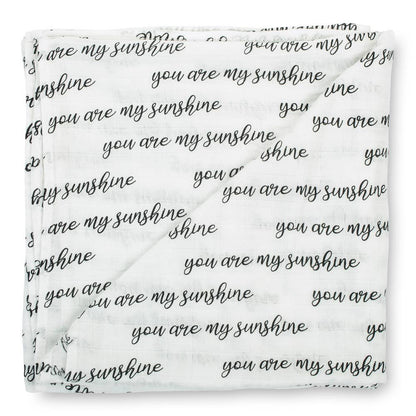 you are my sunshine
you are my sunshine
sunshine
you are my sunshine
you are my
you are my sunshine
you are my
you are my sunshine
shine
my sunshine
you are
you are my sunshine
are my sunshine
you are my
shine
my sunshine
you are my sunshine
you are
you are my sunshine
you are
you are my sunshine
you are my sunshine